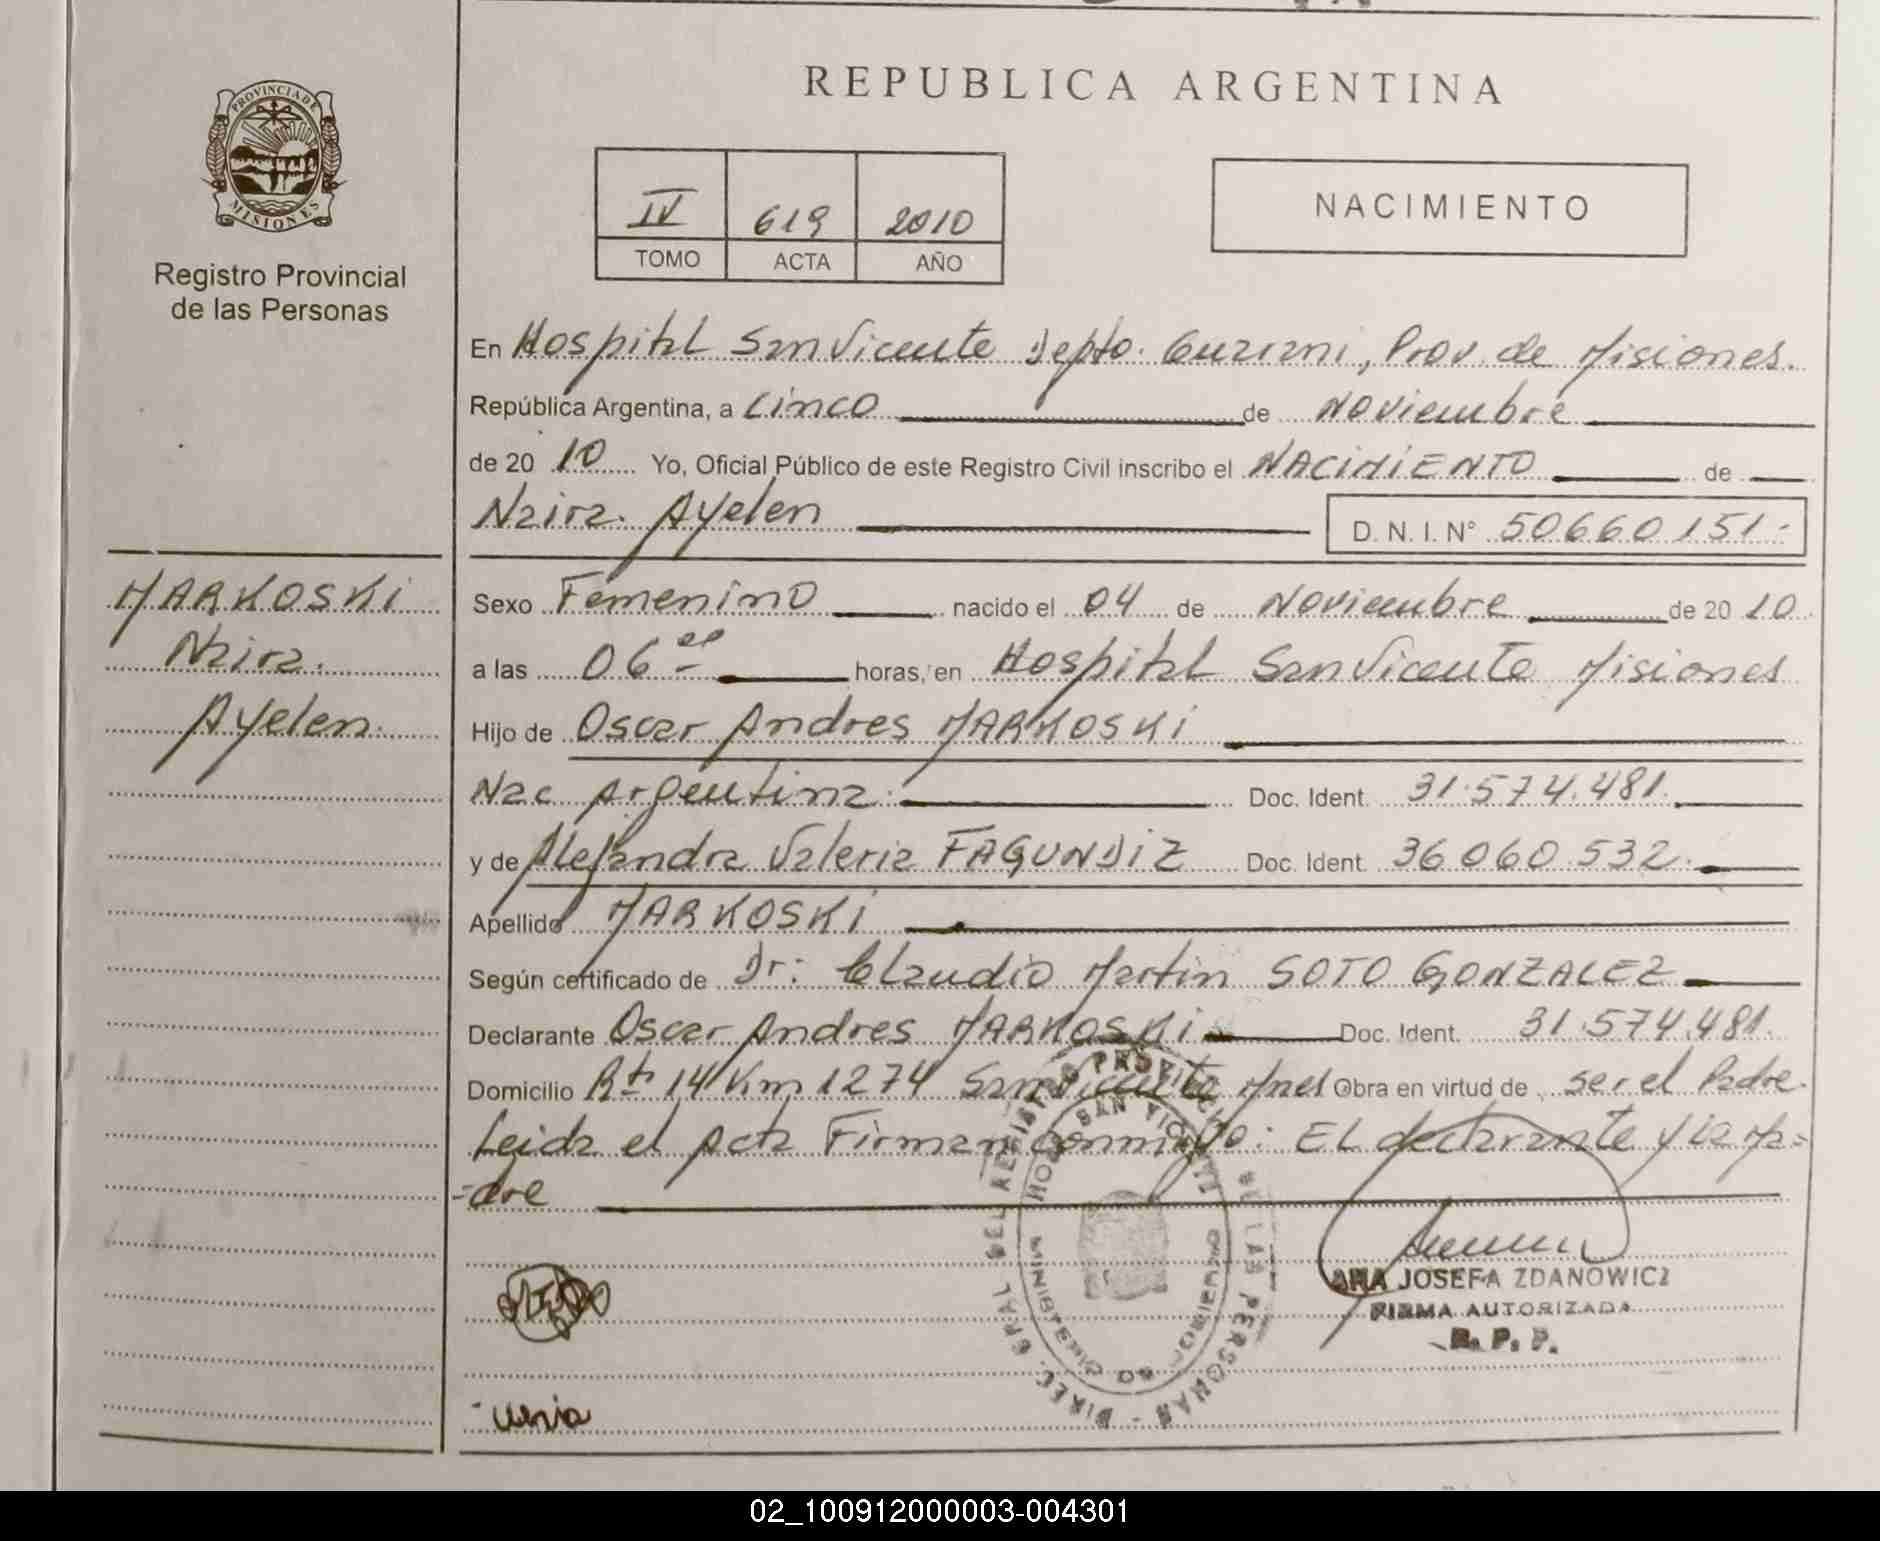 REPUBLICA ARGENTINA
PROVINCIA DE
MISIONES
Registro Provincial
de las Personas
IV 619 2010
TOMO ACTA AÑO
NACIMIENTO
En Hospital San Vicente Depto. Guarani, Prov. de Misiones.
República Argentina, a Cinco de Noviembre
de 20 10 Yo, Oficial Público de este Registro Civil inscribo el NACIMIENTO de
Naira. Ayelen D. N. I. N° 50660151-
MARKOSKI
Naira.
Ayelen.
Sexo Femenino nacido el 04 de Noviembre de 20 10
a las 06 00 horas, en Hospital San Vicente Misiones
Hijo de Oscar Andres MARKOSKI
Nac Argentina. Doc. Ident. 31.574.481.
y de Alejandra Valeria FAGUNDIZ Doc. Ident. 36.060.532.
Apellido MARKOSKI
Según certificado de Dr: Claudio Martin SOTO GONZALEZ
Declarante Oscar Andres MARKOSKI Doc. Ident. 31.574.481.
Domicilio Rta 14 Km 1274 San Vicente Mnes Obra en virtud de ser el Padre.
Leida el Acta Firman conmigo: EL declarante y la Ma=
=dre
DIREC. GRAL DEL REGISTRO PROVINCIAL DE LAS PERSONAS -
HOSP. SAN VICENTE
MINISTERIO DE GOBIERNO
ANA JOSEFA ZDANOWICZ
FIRMA AUTORIZADA
R. P. P.
02_100912000003-004301